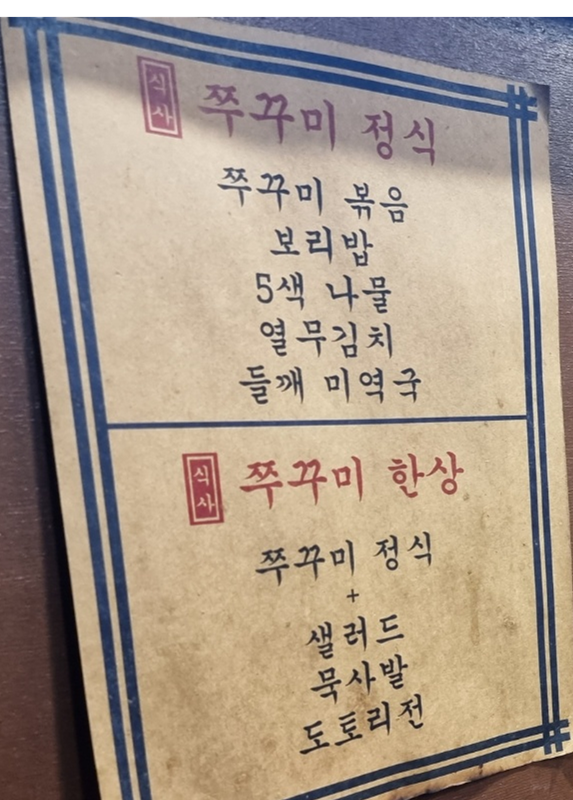 식사 쭈꾸미 정식
쭈꾸미 볶음
보리밥
5색 나물
열무김치
들깨 미역국
식사 쭈꾸미 한상
쭈꾸미 정식
+
샐러드
묵사발
도토리전